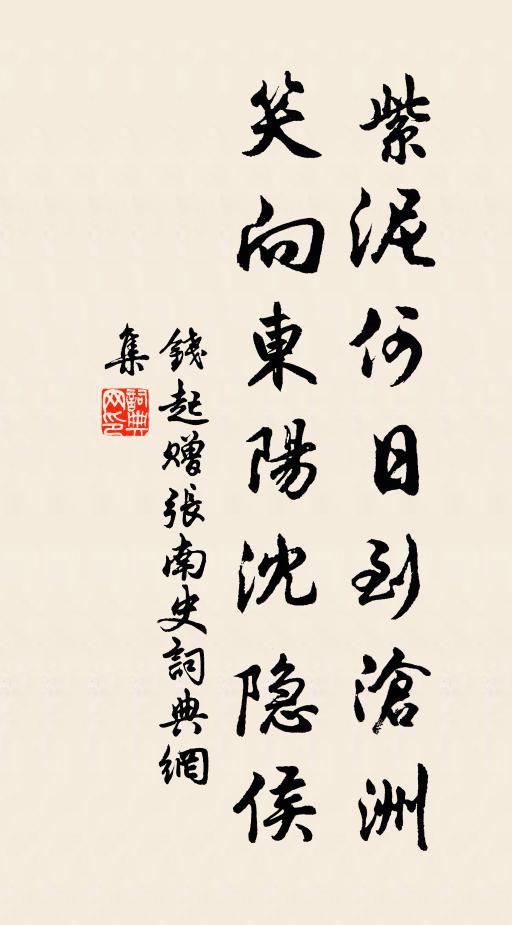 紫泥何日到滄洲
笑向東陽沈隐侯
錢起赠張南史詞典網
集
詞典
网印